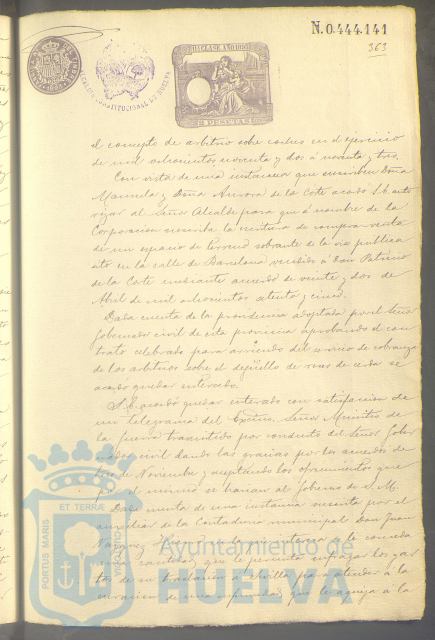 N.0.444.141
363
11ª CLASE AÑO 1893
2 PESETAS
ALCALDIA CONSTITUCIONAL DE HUELVA
el concepto de arbitrio sobre coches en el ejercicio
de mil ochocientos noventa y dos á noventa y tres.
Con vista de una instancia que suscriben Doña
Manuela y Doña Aurora de la Corte acordó S.E. auto
rizar al Señor Alcalde para que á nombre de la
Corporacion suscriba la escritura de compra-venta
de un espacio de terreno sobrante de la via publica
sito en la calle de Barcelona vendido á Don Patricio
de la Corte mediante acuerdo de veinte y dos de
Abril de mil ochocientos ochenta y cinco.
Dada cuenta de la providencia adoptada por el Señor
Gobernador civil de esta provincia aprobando el con
trato celebrado para arriendo del servicio de cobranza
de los arbitrios sobre el degüello de reses de cerda se
acordó quedar enterado.
S.E. acordó quedar enterado con satisfaccion de
un telegrama del Excmo. Señor Ministro de
la Guerra trasmitido por conducto del Señor Gober
nador civil dando las gracias por los acuerdos de
de Noviembre y aceptando los ofrecimientos que
por el mismo se hacian al Gobierno de S.M.
Dada cuenta de una instancia suscrita por el
auxiliar de la Contaduria municipal Don Juan
Navarro en la que interesa se le conceda
una cantidad que le permita sufragar los gas
tos de su traslacion á Sevilla para atender á la
curacion de una enfermedad que le aqueja á la
PORTUS MARIS
ET TERRÆ
CUSTODIA
Ayuntamiento de
HUELVA